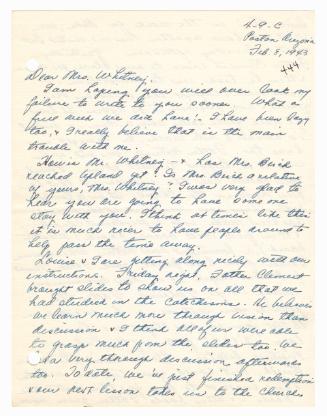 4-9-C
Poston Arizona
Feb. 8, 1943
444
Dear Mrs. Whitney,
I am hoping you will over look my
failure to write to you sooner. What a
we did have! I have been busy
too, & I really believe that is the main
trouble with me.
How is Mr. Whitney - & has Mrs. Buck
reached Upland yet? Is Mrs. Buck a relative
of yours, Mrs. Whitney? I was very glad to
hear you are going to have some one
stay with you. I think at times like this
it is much nicer to have people around to
help pass the time away.
Louise & I are getting along nicely with our
instructions. Friday night, Father Clement
brought slides to show us on all that we
had studied in the Catechism. He believes
we learn much more through vision than
discussion & I think all of us were able
to grasp much from the slides too. We
had a very thorough discussion afterwards
too. To date, we've just finished redemption
& our next lesson takes us to the Church